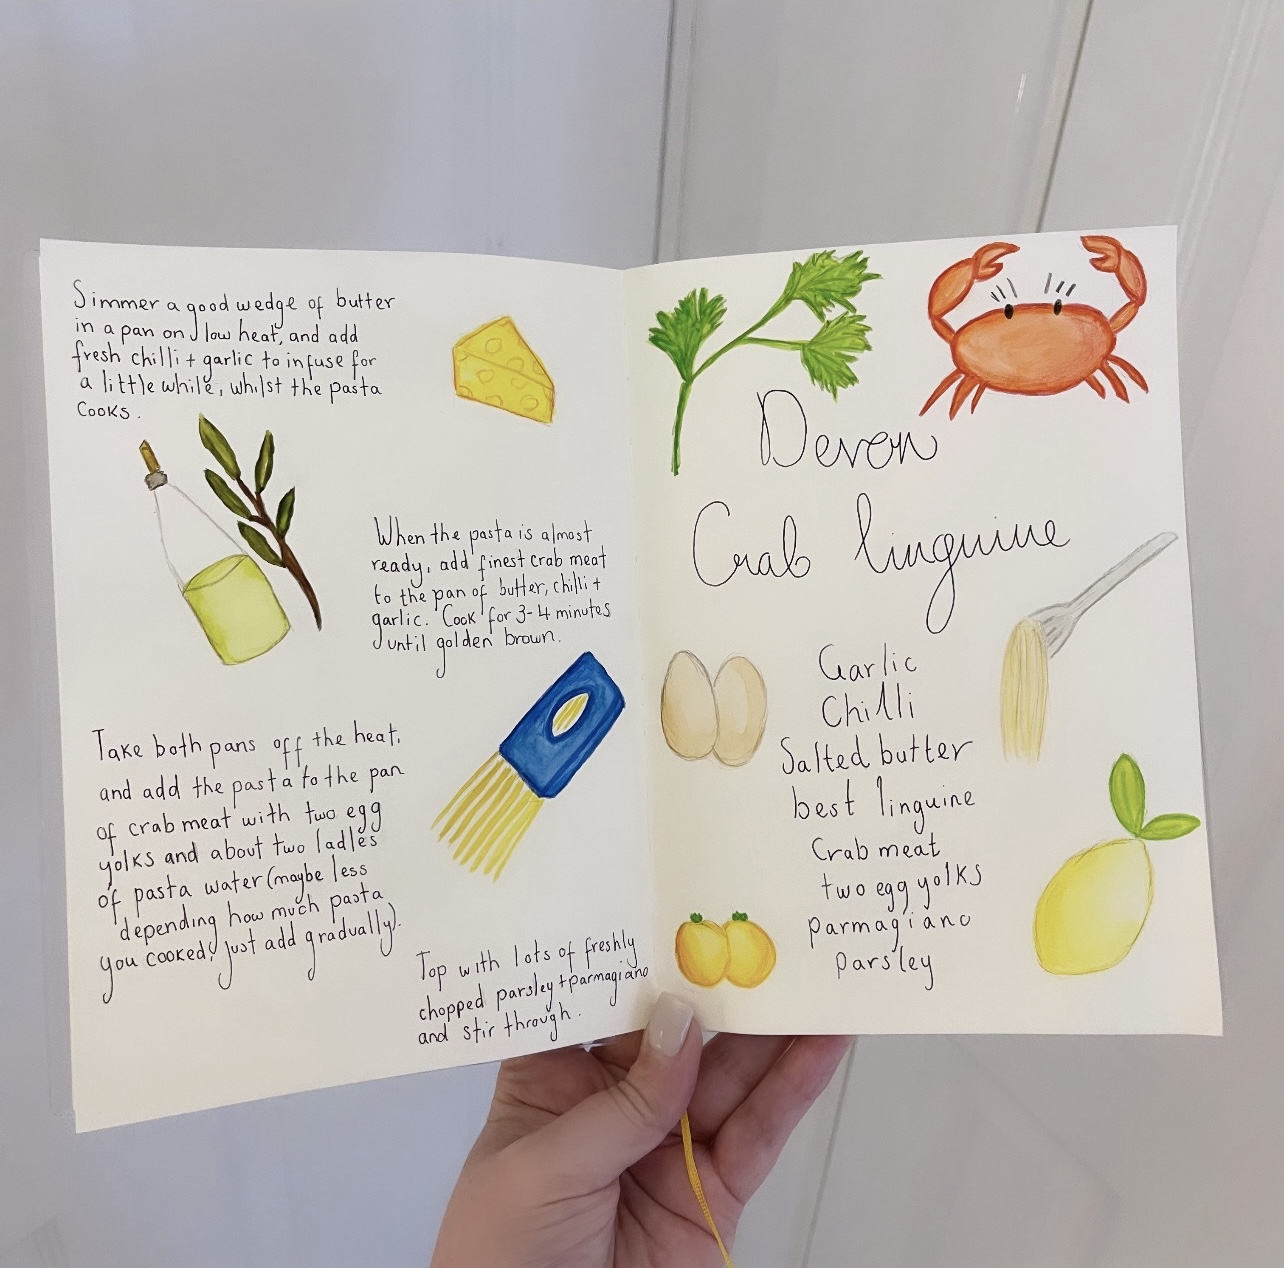 Simmer a good wedge of butter
in a pan on low heat, and add
fresh chilli + garlic to infuse for
a little while, whilst the pasta
cooks.
When the pasta is almost
ready, add finest crab meat
to the pan of butter, chilli +
garlic. Cook for 3-4 minutes
until golden brown.
Take both pans off the heat,
and add the pasta to the pan
of crab meat with two egg
yolks and about two ladles
of pasta water (maybe less
depending how much pasta
you cooked, just add gradually).
Top with lots of freshly
chopped parsley + parmagiano
and stir through.
Devon
Crab linguine
Garlic
Chilli
Salted butter
best linguine
Crab meat
two egg yolks
parmagiano
parsley